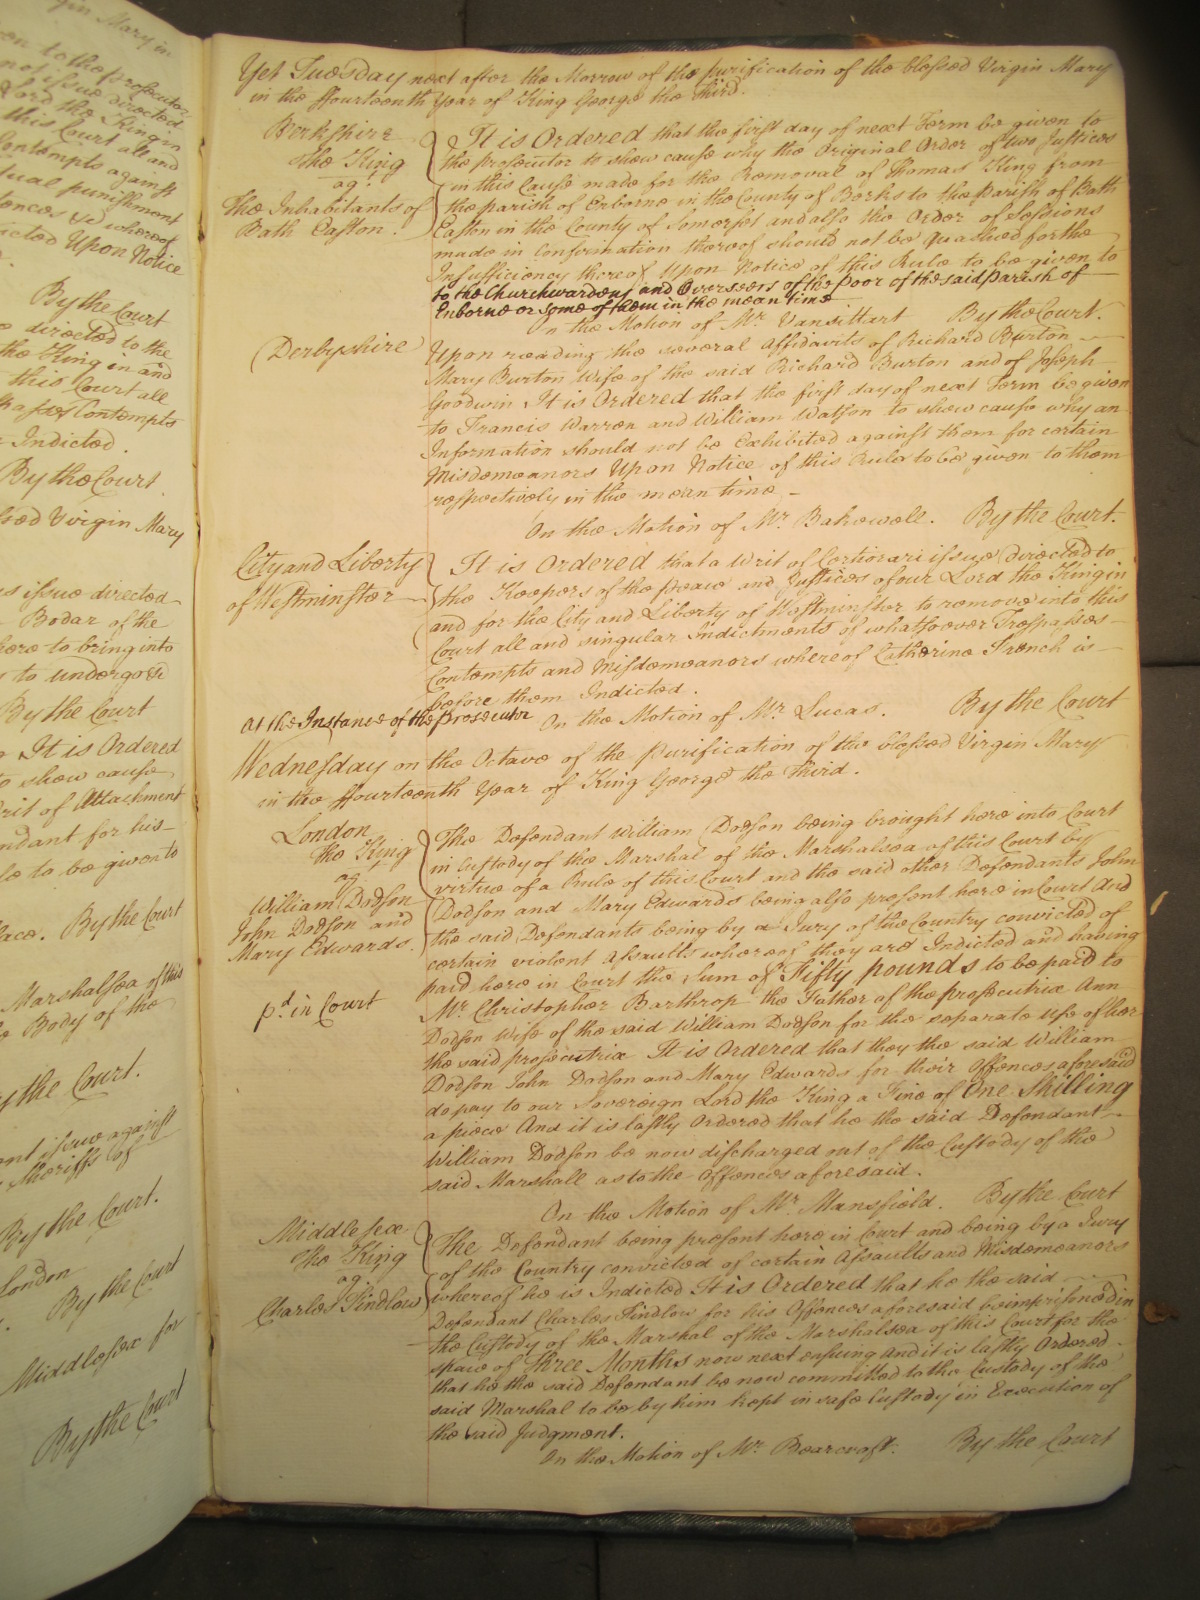 gin Mary in
on to the prosecutor
not issue directed
Lord the King in
this Court all and
Contempts against
punishment
&c whereof
Upon Notice
By the Court
directed to the
the King in and
this Court all
Contempts
Indicted.
By the Court
Virgin Mary
issue directed
Bodar of the
here to bring into
to undergo &c
By the Court
It is Ordered
to shew cause
writ of Attachment
ndant for his
to be given to
By the Court
Marshalsea of this
Body of the
By the Court.
issue against
Sheriffs of
By the Court.
London
By the Court
Middlesex for
By the Court
Yet Tuesday next after the Morrow of the purification of the blessed Virgin Mary
in the ffourteenth Year of King George the Third.
Berkshire
The King
agt
The Inhabitants of
Bath Easton.
It is Ordered that the first day of next Term be given to
the prosecutor to shew cause why the Original Order of two Justices
in this Cause made for the Removal of Thomas King from
the parish of Enborne in the County of Berks to the parish of Bath
Easton in the County of Somerset and also the Order of Sessions
made in Confirmation thereof should not be Quashed for the
Insufficiency thereof Upon Notice of this Rule to be given to
to the Churchwardens and Overseers of the poor of the said parish of
Enborne or some of them in the mean time
On the Motion of Mr. Vansittart By the Court.
Derbyshire
Upon reading the several Affidavits of Richard Burton
Mary Burton Wife of the said Richard Burton and of Joseph
Goodwin It is Ordered that the first day of next Term be given
to Francis Warren and William Watson to shew cause why an
Information should not be Exhibited against them for certain
Misdemeanors Upon Notice of this Rule to be given to them
respectively in the mean time -
On the Motion of Mr. Bakewell. By the Court.
City and Liberty
of Westminster
It is Ordered that a Writ of Certiorari issue directed to
the Keepers of the peace and Justices of our Lord the King in
and for the City and Liberty of Westminster to remove into this
Court all and singular Indictments of whatsoever Trespasses
Contempts and Misdemeanors whereof Catherine French is
before them Indicted.
At the Instance of the prosecutor On the Motion of Mr. Lucas. By the Court
Wednesday on the Octave of the Purification of the blessed Virgin Mary
in the ffourteenth Year of King George the Third.
London
The King
agt
William Dodson
John Dodson and
Mary Edwards.
pd in Court
The Defendant William Dodson being brought here into Court
in Custody of the Marshal of the Marshalsea of this Court by
virtue of a Rule of this Court and the said other Defendants John
Dodson and Mary Edwards being also present here in Court And
the said Defendants being by a Jury of the Country convicted of
certain violent Assaults whereof they are Indicted and having
paid here in Court the Sum of Fifty pounds to be paid to
Mr. Christopher Barthrop the Father of the prosecutrix Ann
Dodson Wife of the said William Dodson for the separate use of her
the said prosecutrix It is Ordered that they the said William
Dodson John Dodson and Mary Edwards for their Offences aforesaid
do pay to our Sovereign Lord the King a Fine of One Shilling
a piece And it is lastly Ordered that he the said Defendant
William Dodson be now discharged out of the Custody of the
said Marshall as to the Offences aforesaid.
On the Motion of Mr. Mansfield. By the Court
Middlesex
The King
agt
Charles Findlow
The Defendant being present here in Court and being by a Jury
of the Country convicted of certain Assaults and Misdemeanors
whereof he is Indicted It is Ordered that he the said
Defendant Charles Findlow for his Offences aforesaid be imprisoned in
the Custody of the Marshal of the Marshalsea of this Court for the
space of Three Months now next ensuing And it is lastly Ordered
that he the said Defendant be now committed to the Custody of the
said Marshal to be by him kept in safe Custody in Execution of
the said Judgment.
On the Motion of Mr. Bearcroft. By the Court